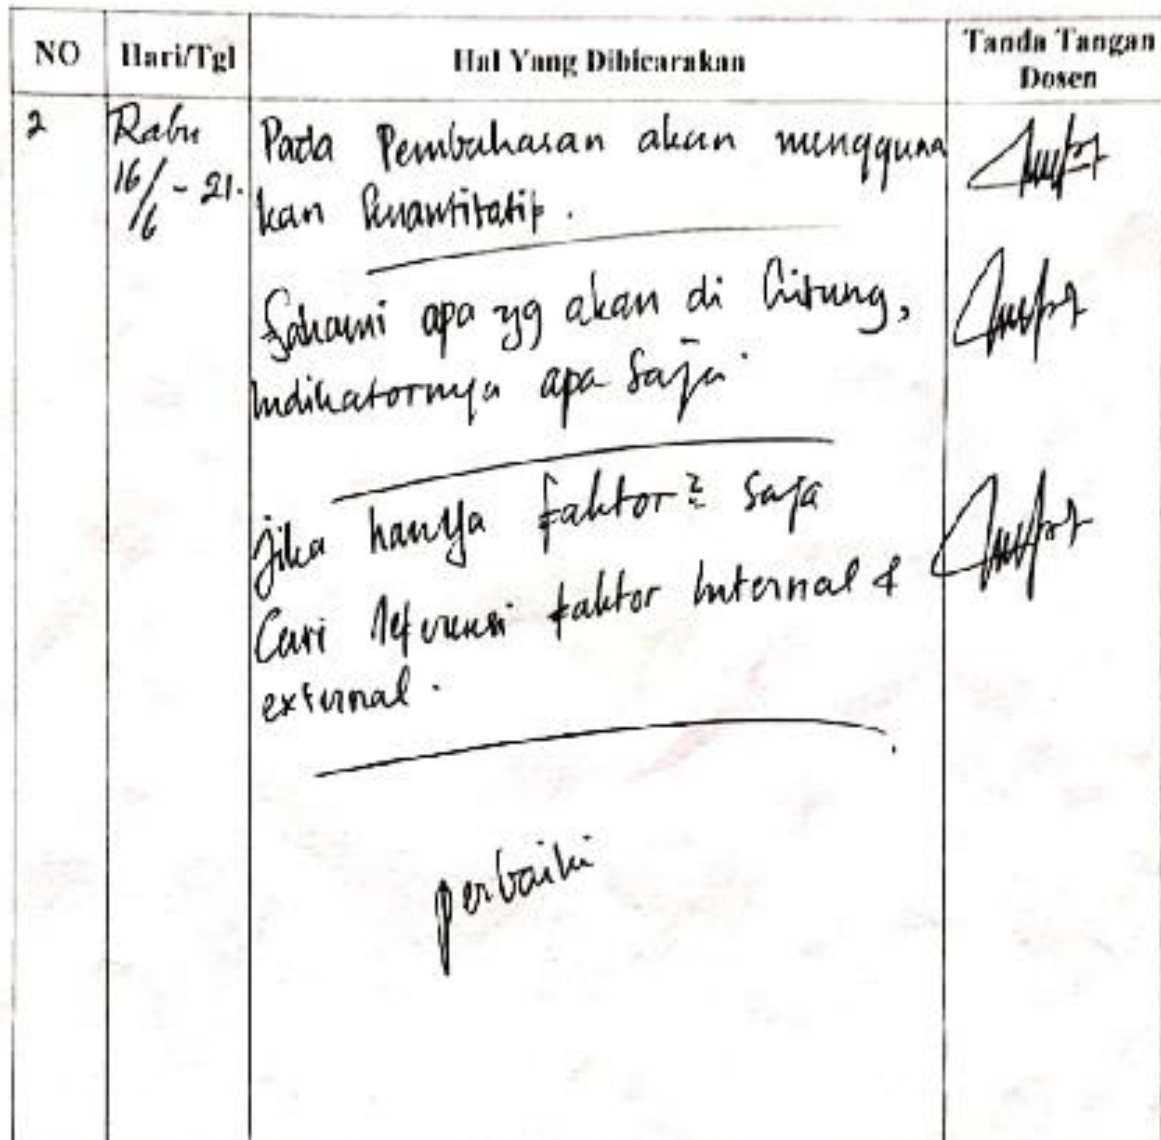 NO Hari/Tgl Hal Yang Dibicarakan Tanda Tangan
Dosen
2 Rabu Pada Pembahasan akan mengguna
16/6 - 21. kan kuantitatif.
Fahami apa yg akan di hitung,
Indikatornya apa saja
Jika hanya faktor2 saja
Cari referensi faktor Internal &
external.
perbaiki